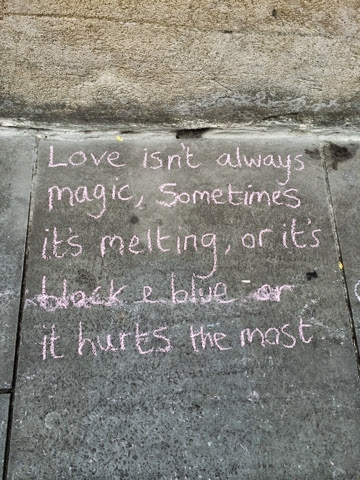 Love isn't always
magic, Sometimes
it's melting, or it's
black & blue or
it hurts the most